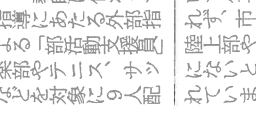 指導にあたる外部指
よる「部活動支援員」
楽部やテニス、サッ
などを対象に9人配
れず、市
陸上部や
にないと
れていま